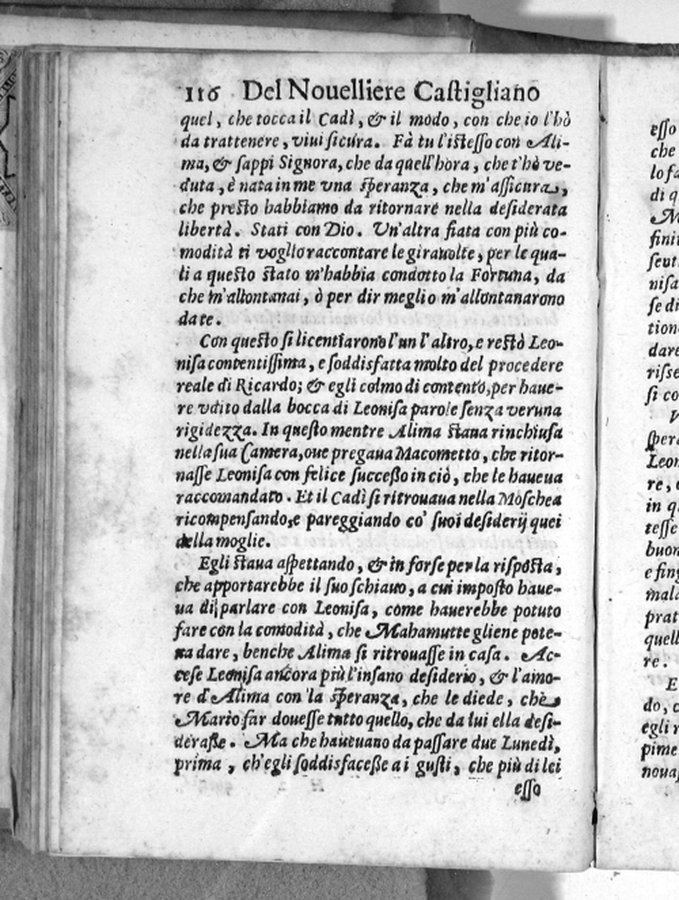 116 Del Nouelliere Castigliano
quel, che tocca il Cadì, & il modo, con che io l'hò
da trattenere, viui sicura. Fà tu l'istesso con Ali-
ma, & sappi Signora, che da quell'hora, che t'hò ve-
duta, è nata in me vna speranza, che m'assicura,
che presto habbiamo da ritornare nella desiderata
libertà. Stati con Dio. Vn'altra fiata con più co-
modità ti voglio raccontare le girauolte, per le qua-
li a questo stato m'habbia condotto la Fortuna, da
che m'allontanai, ò per dir meglio m'allontanarono
da te.
Con questo si licentiarono l'un l'altro, e restò Leo-
nisa contentissima, e soddisfatta molto del procedere
reale di Ricardo; & egli colmo di contento, per haue-
re vdito dalla bocca di Leonisa parole senza veruna
rigidezza. In questo mentre Alima staua rinchiusa
nella sua Camera, oue pregaua Macometto, che ritor-
nasse Leonisa con felice successo in ciò, che le haueua
raccomandato. Et il Cadì si ritrouaua nella Moschea
ricompensando, e pareggiando co' suoi desiderij quei
della moglie.
Egli staua aspettando, & in forse per la risposta,
che apportarebbe il suo schiauo, a cui imposto haue-
ua di parlare con Leonisa, come hauerebbe potuto
fare con la comodità, che Mahamutte gliene pote-
ua dare, benche Alima si ritrouasse in casa. Ac-
cese Leonisa ancora più l'insano desiderio, & l'amo-
re d'Alima con la speranza, che le diede, che
Mario far douesse tutto quello, che da lui ella desi-
derasse. Ma che haueuano da passare due Lunedì,
prima, ch'egli soddisfacesse a i gusti, che più di lei
esso